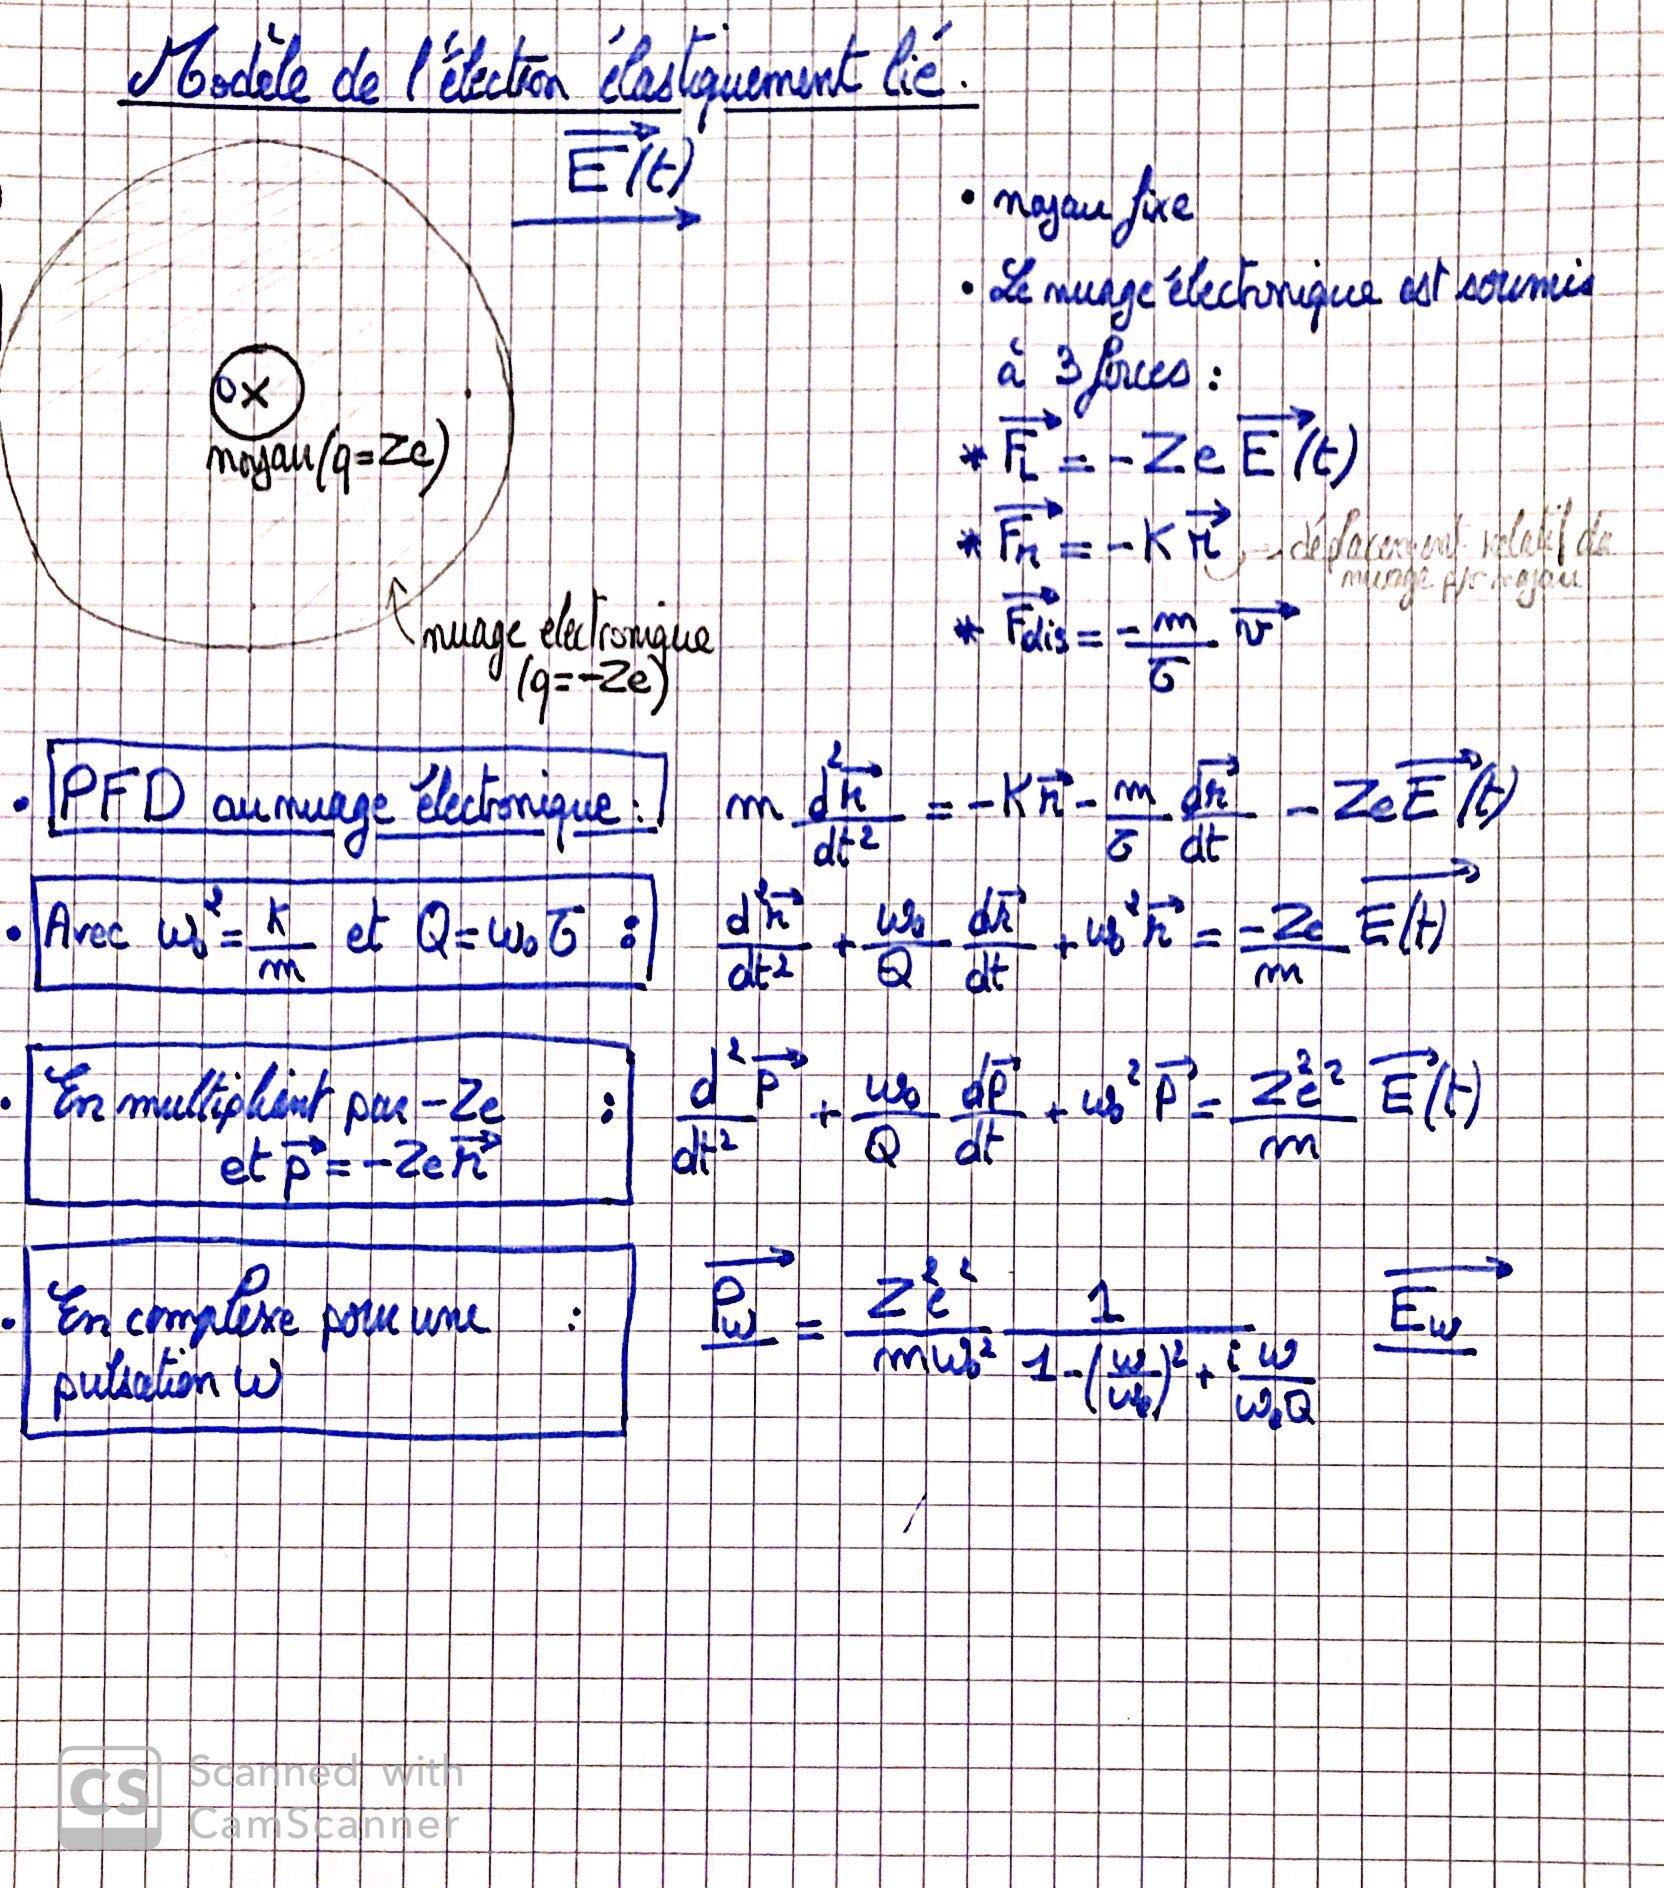 Modèle de l'électron élastiquement lié.
E(t)
• noyau fixe
• Le nuage électronique est soumis
à 3 forces :
O×
noyau (q=Ze)
* F_L = -Ze E(t)
* F_r = -K r → déplacement relatif du
nuage p/r noyau
* F_dis = -m/τ v
nuage électronique
(q=-Ze)
• PFD au nuage électronique : m d²r/dt² = -K r - m/τ dr/dt - Ze E(t)
• Avec ω₀² = K/m et Q = ω₀τ : d²r/dt² + ω₀/Q dr/dt + ω₀² r = -Ze/m E(t)
• En multipliant par -Ze
et p = -Ze r : d²p/dt² + ω₀/Q dp/dt + ω₀² p = Z²e²/m E(t)
• En complexe pour une
pulsation ω : P_ω = Z²e²/mω₀² 1/(1-(ω/ω₀)² + i ω/ω₀Q) E_ω
CS Scanned with
CamScanner